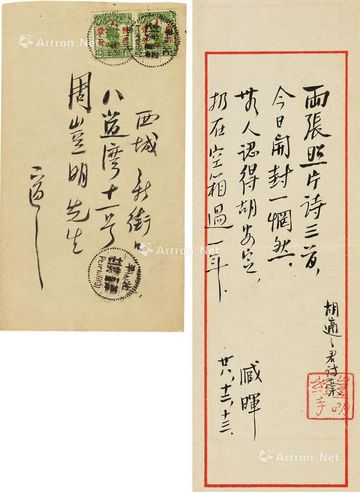 西城新街口
八道灣十一号
周豈明先生
兩張照片诗三首,
今日開封一惘然,
無人認得胡安定,
扔在空箱過一年.
臧暉
廿八.十二.十三.
胡適之君诗稾
Artron.Net
Artron.Net